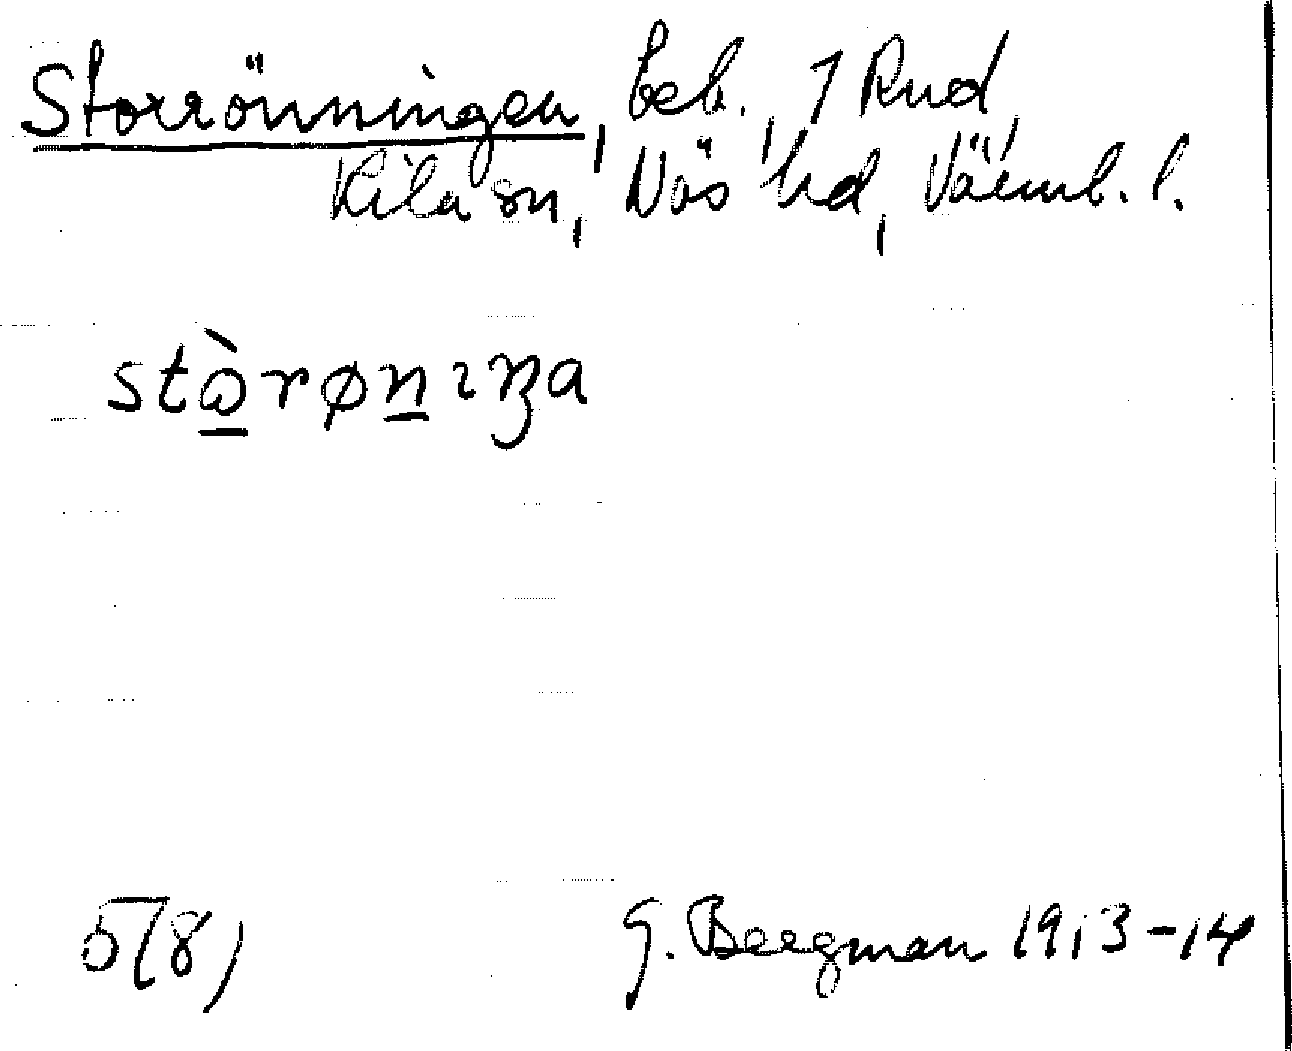 Storrönningen, beb., 1 Rud,
Kila sn, Näs hd, Värml. l.
stɷ̠̀røn̠ıŋa
5(8)
G. Bergman 1913-14